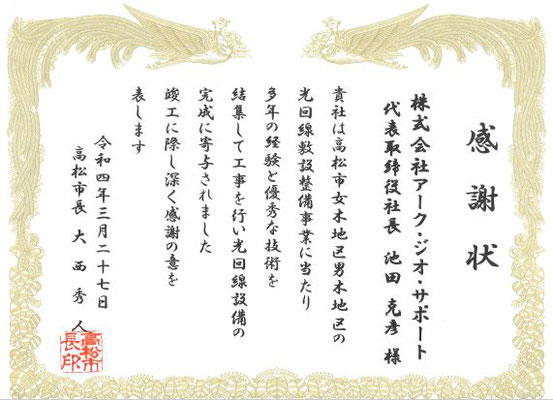 感謝状
株式会社アーク・ジオ・サポート
代表取締役社長 池田克彦様
貴社は高松市女木地区男木地区の
光回線敷設整備事業に当たり
多年の経験と優秀な技術を
結集して工事を行い光回線設備の
完成に寄与されました
竣工に際し深く感謝の意を
表します
令和四年三月二十七日
高松市長 大西秀人
高松市
長印